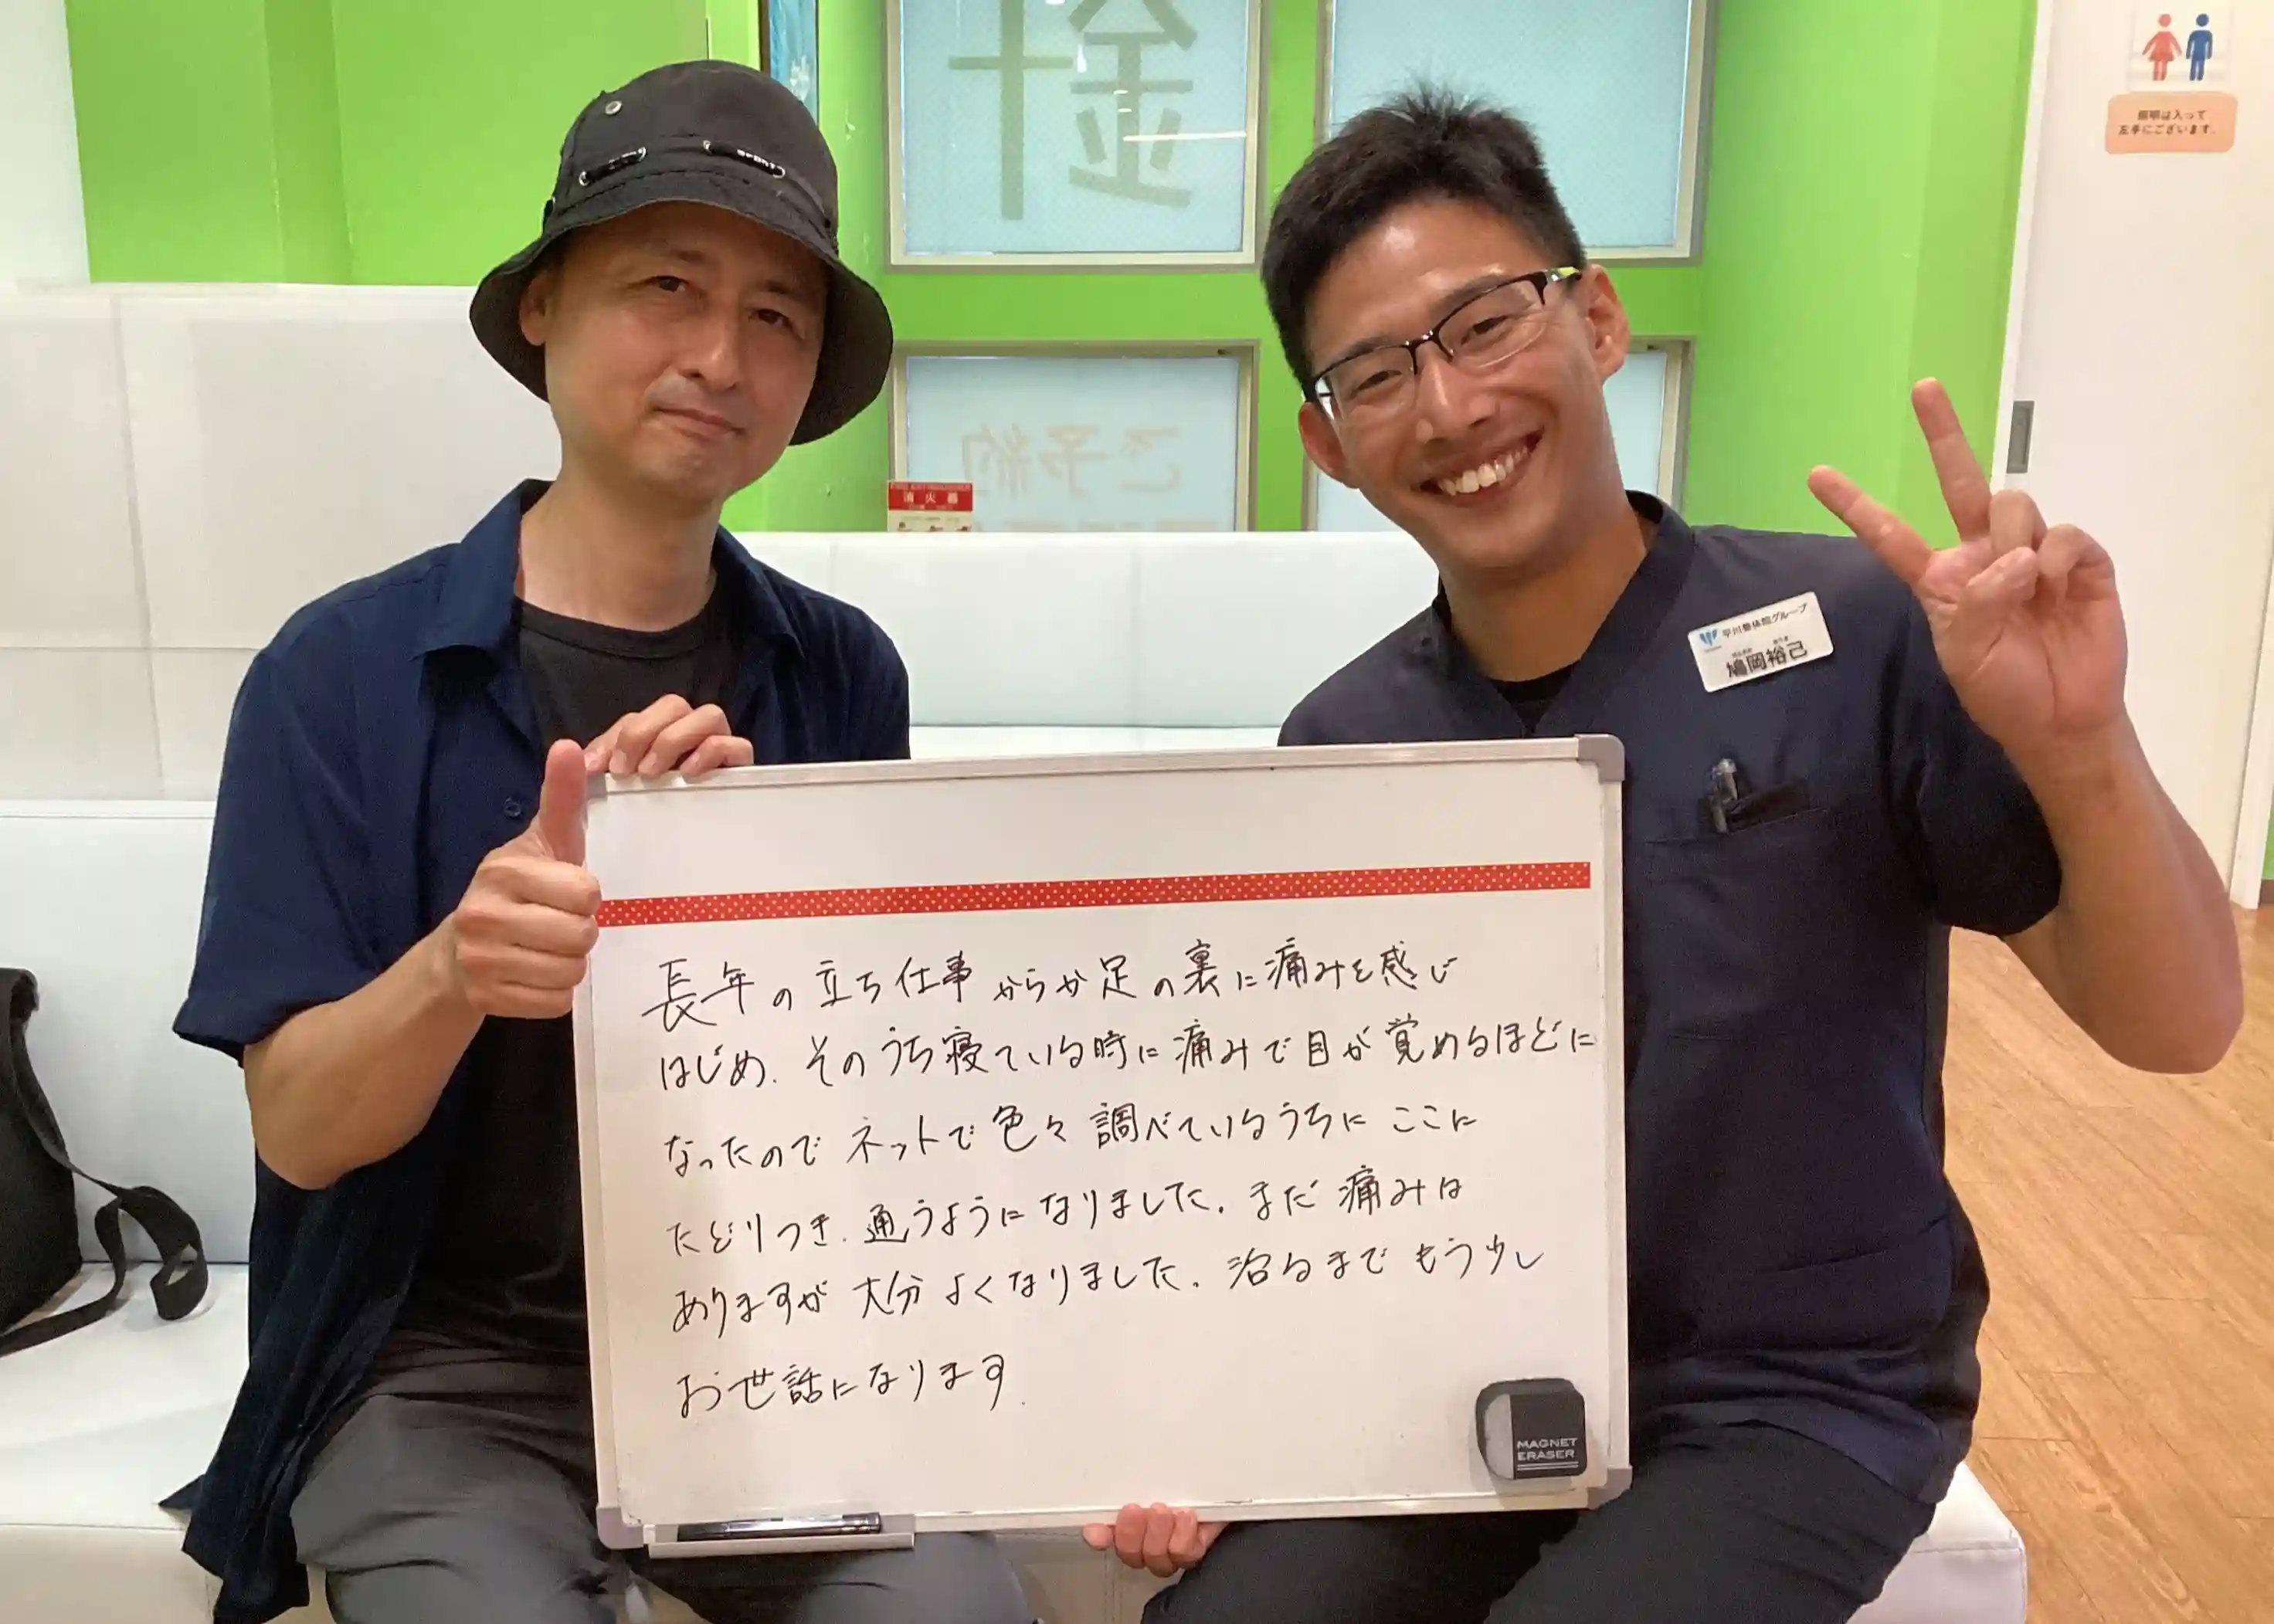 針
ご予約
消火器
照明は入って
左手にございます。
平川整体院グループ
鳩岡裕己
長年の立ち仕事からか足の裏に痛みを感じ
はじめ、そのうち寝ている時に痛みで目が覚めるほどに
なったのでネットで色々調べているうちにここに
たどりつき、通うようになりました。まだ痛みは
ありますが大分よくなりました。治るまでもう少し
お世話になります。
MAGNET
ERASER